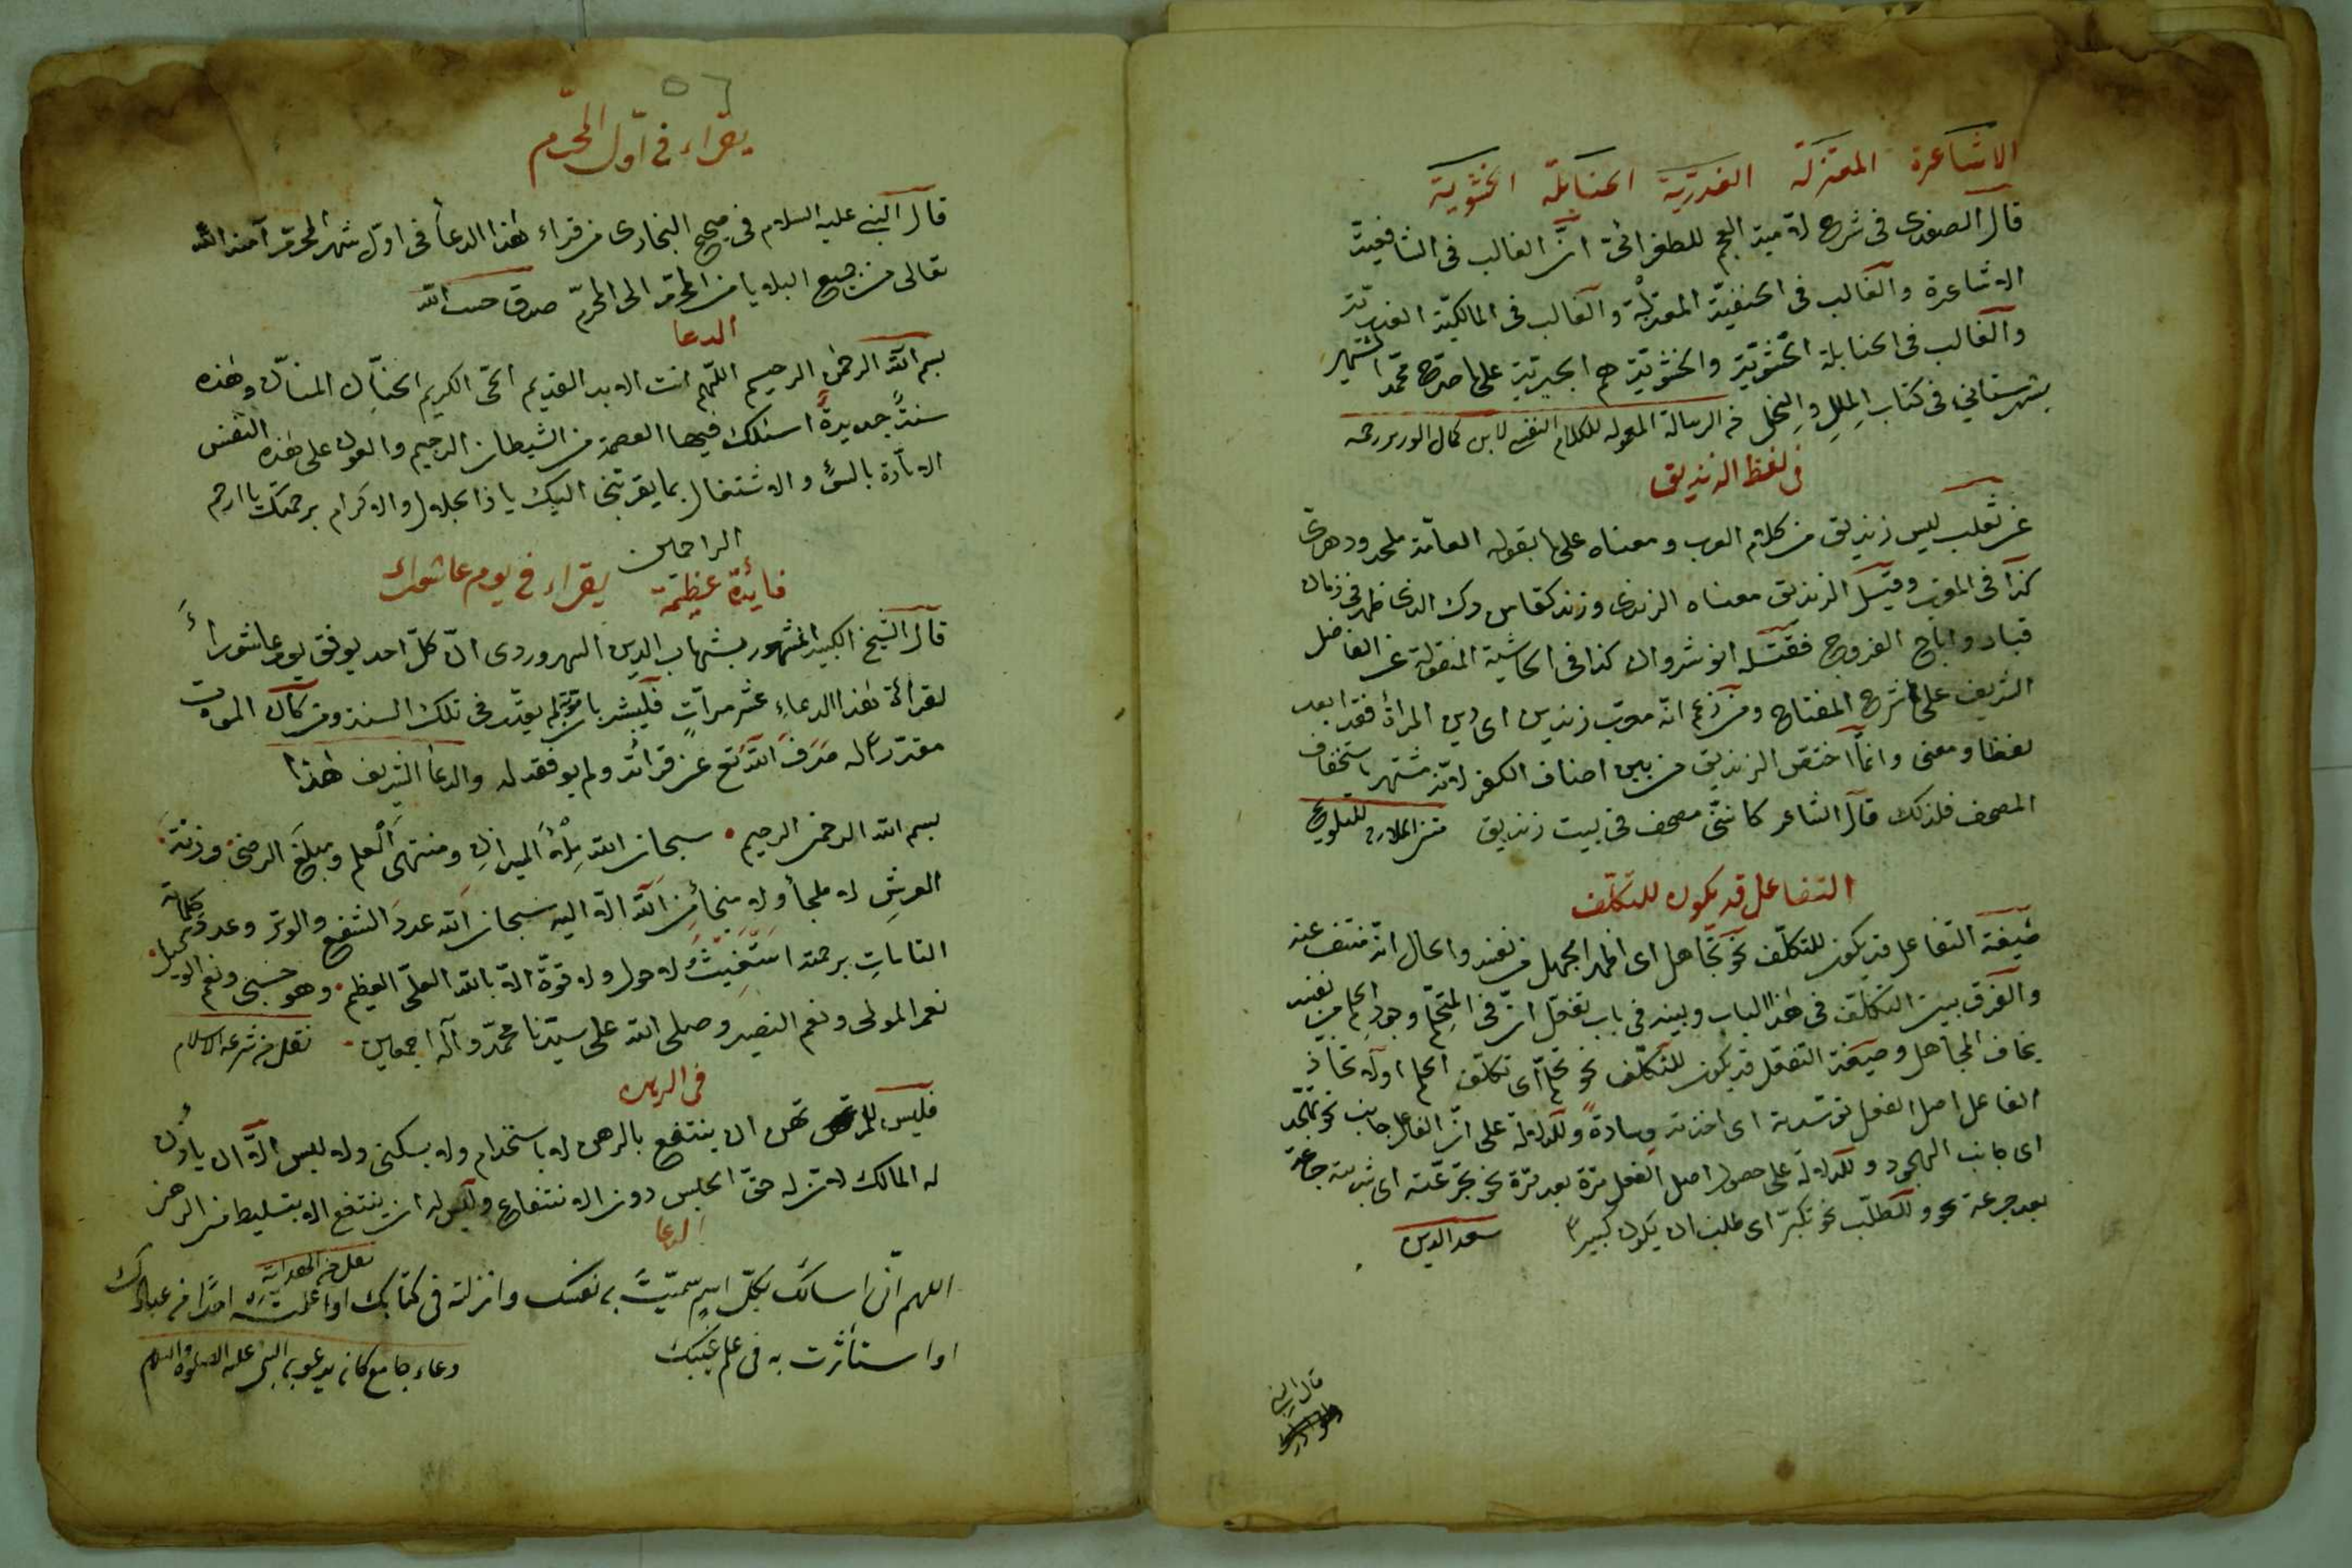 الاشاعرة المعتزلة القدرية الحنابلة الحشوية
قال الصفدى فى شرح لامية العجم للطغرائى انّ الغالب فى الشافعيّة
الاشاعرة والغالب فى الحنفيّة المعتزلة والغالب فى المالكيّة القدريّة
والغالب فى الحنابلة الحشويّة والحشويّة هم الجبريّة على ما صرّح محمّد الشهير
بشهرستاني فى كتاب الملل والنحل من الرسالة المعموله للكلام النفسى لابن كمال الوزير رحمه
فى لفظ الزنديق
عن ثعلب ليس زنديق من كلام العرب ومعناه على ما يقوله العامّة ملحد ودهرى
كذا فى المغرب وقيل الزنديق معناه الزندى وزند كتاب مزدك الذى ظهر فى زمان
قباد واباح الفروج فقتله انوشروان كذا فى الحاشية المنقولة عن الفاضل
الشريف على شرح المفتاح ومن زعم انّه معرّب زندين اى دين المرأة فقد ابعد
لفظا ومعنى وانّما اختصّ الزنديق من بين اصناف الكفر لانّه مشتهر باستخفاف
المصحف فلذلك قال الشاعر كأننى مصحف فى بيت زنديق للتلويح
التفاعل قد يكون للتكلّف
صيغة التفاعل قد يكون للتكلّف نحو تجاهل اى اظهر الجهل من نفسه والحال انّه منتف عنه
والفرق بين التكلّف فى هذا الباب وبينه فى باب تفعّل انّ فى المتحلّم وجود الحلم من نفسه
بخلاف المتجاهل وصيغة التفعّل قد يكون للتكلّف نحو تحلّم اى تكلّف الحلم اولاتخاذ
الفاعل اصل الفعل نحو توسّدته اى اخذته وسادة وللدلالة على انّ الفاعل جانب نحو تهجّد
اى جانب الهجود وللدلالة على حصول اصل الفعل مرّة بعد مرّة نحو تجرّعته اى شربته جرعة
بعد جرعة نحو وللطلب نحو تكبّر اى طلب ان يكون كبيرا سعد الدين
قال النبى
٥٦
يقراء فى اوّل المحرّم
قال النبى عليه السلام فى صحيح البخارى من قراء هذا الدعاء فى اوّل شهر المحرّم آمنه الله
تعالى من جميع البلايا من المحرّم الى المحرّم صدق حبيب الله
الدعا
بسم الله الرحمن الرحيم اللّهم انت الابد القديم الحىّ الكريم الحنّان المنّان وهذه
سنةٌ جديدةٌ اسئلك فيها العصمة من الشيطان الرجيم والعون على هذه النفس
الامّارة بالسوء والاشتغال بما يقرّبنى اليك يا ذا الجلال والاكرام برحمتك يا ارحم
الراحمين
فائدة عظيمة يقراء فى يوم عاشوراء
قال الشيخ الكبير المشهور بشهاب الدين السهروردى انّ كلّ احد يوفق يوم عاشوراء
لقرائة هذا الدعاء عشر مرّات فليبشر بانّ موته لم يقدّر فى تلك السنة ومن كان الموت
مقدّرا له صرف الله تع عن قرائته ولم يوفقه له والدعاء الشريف هذا
بسم الله الرحمن الرحيم سبحان الله ملأ الميزان ومنتهى العلم ومبلغ الرضى وزنة
العرش لا ملجأ ولا منجأ من الله الا اليه سبحان الله عدد الشفع والوتر وعدد كلماته
التامات برحمته استغيث لا حول ولا قوّة الا بالله العلىّ العظيم وهو حسبى ونعم الوكيل
نعم المولى ونعم النصير وصلى الله على سيّدنا محمّد وآله اجمعين نقل من شرعة الاسلام
فى الرهن
فليس للمرتهن ان ينتفع بالرهن لا باستخدام ولا بسكنى ولا لبس الّا ان يأذن
له المالك لانّ له حقّ الحبس دون الانتفاع وليس له ان ينتفع الا بتسليط من الراهن
نقل من الهداية
الدعا
اللهم انّى اسالك بكلّ اسم سمّيت به نفسك وانزلته فى كتابك او علمته احدا من عبادك
او استأثرت به فى علم غيبك دعاء جامع كان يدعو به النبى عليه الصلوة والسلام